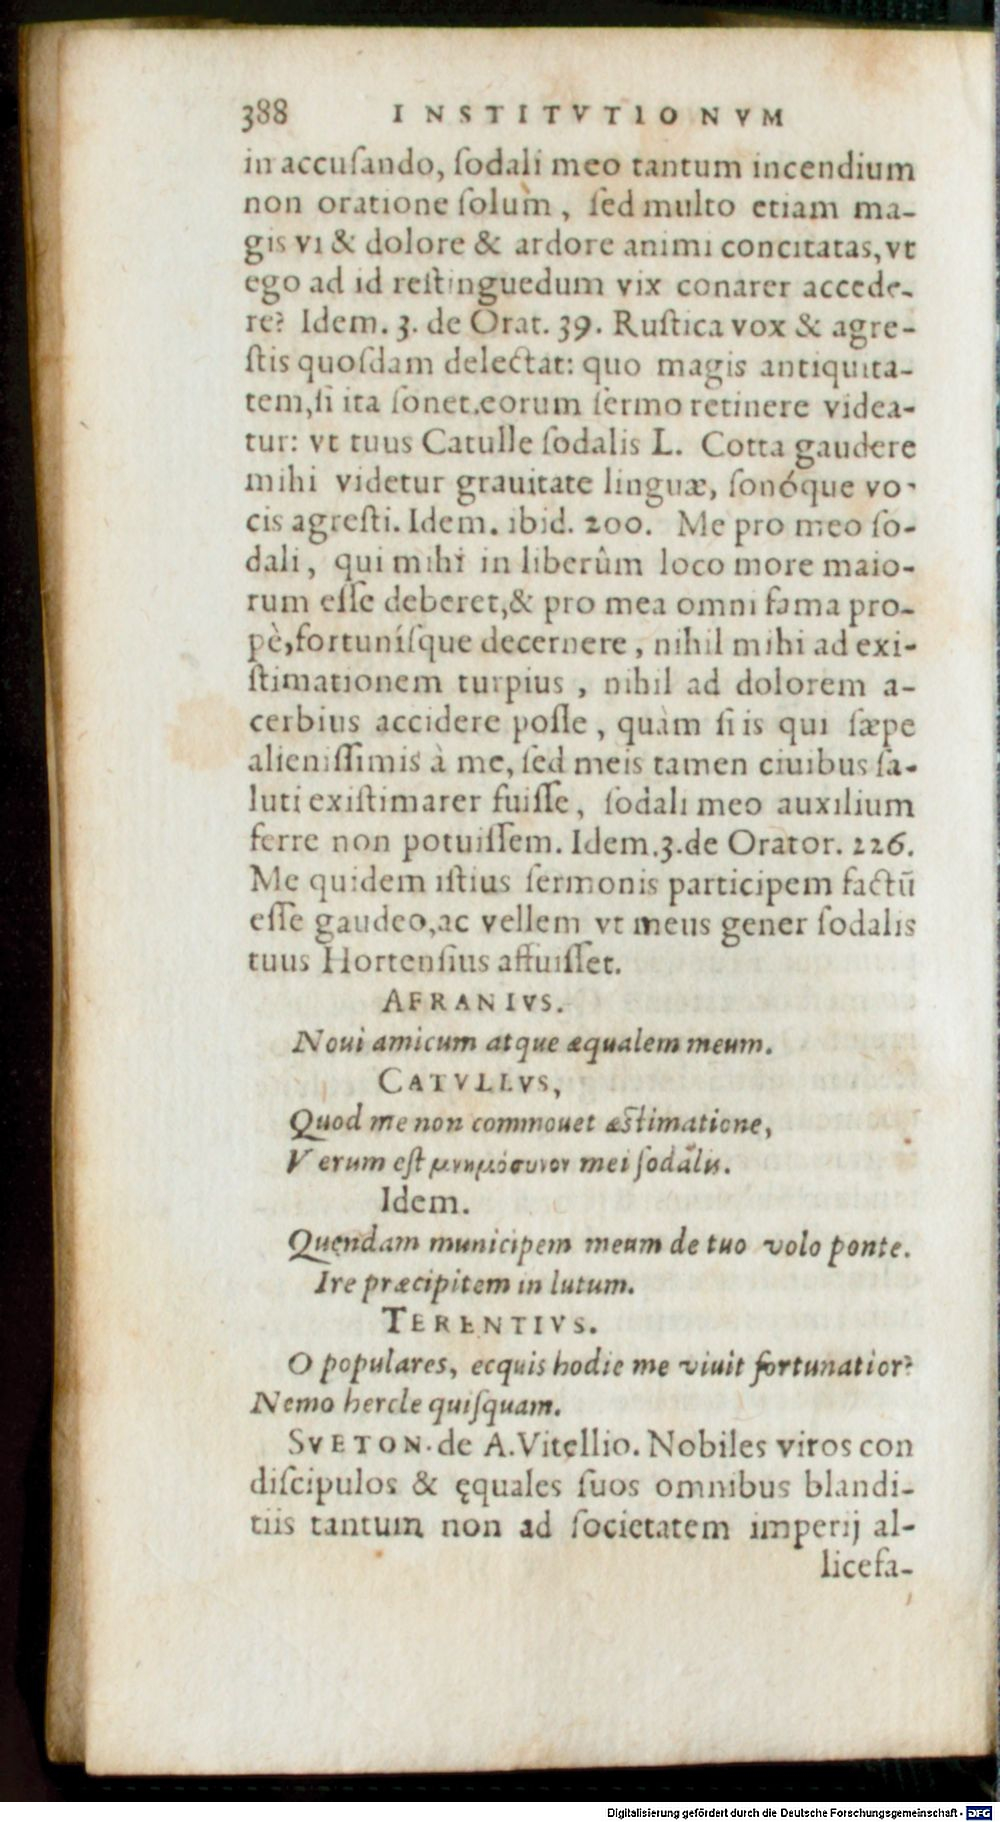 388 INSTITVTIONVM
in accuſando, ſodali meo tantum incendium
non oratione ſolùm, ſed multo etiam ma-
gis vi & dolore & ardore animi concitatas, vt
ego ad id reſtinguedum vix conarer accede-
re? Idem. 3. de Orat. 39. Ruſtica vox & agre-
ſtis quoſdam delectat: quo magis antiquita-
tem, ſi ita ſonet, eorum ſermo retinere videa-
tur: vt tuus Catulle ſodalis L. Cotta gaudere
mihi videtur grauitate linguæ, ſonóque vo-
cis agreſti. Idem. ibid. 200. Me pro meo ſo-
dali, qui mihi in liberûm loco more maio-
rum eſſe deberet, & pro mea omni fama pro-
pè, fortuníſque decernere, nihil mihi ad exi-
ſtimationem turpius, nihil ad dolorem a-
cerbius accidere poſſe, quàm ſi is qui ſæpe
alieniſſimis à me, ſed meis tamen ciuibus ſa-
luti exiſtimarer fuiſſe, ſodali meo auxilium
ferre non potuiſſem. Idem. 3. de Orator. 226.
Me quidem iſtius ſermonis participem factū
eſſe gaudeo, ac vellem vt meus gener ſodalis
tuus Hortenſius affuiſſet.
AFRANIVS.
Noui amicum atque æqualem meum.
CATVLLVS,
Quod me non commouet æſtimatione,
Verum eſt μνημόσυνον mei ſodalis.
Idem.
Quendam municipem meum de tuo volo ponte.
Ire præcipitem in lutum.
TERENTIVS.
O populares, ecquis hodie me viuit fortunatior?
Nemo hercle quiſquam.
SVETON. de A. Vitellio. Nobiles viros con
diſcipulos & ęquales ſuos omnibus blandi-
tiis tantum non ad ſocietatem imperij al-
licefa-
Digitalisierung gefördert durch die Deutsche Forschungsgemeinschaft - DFG